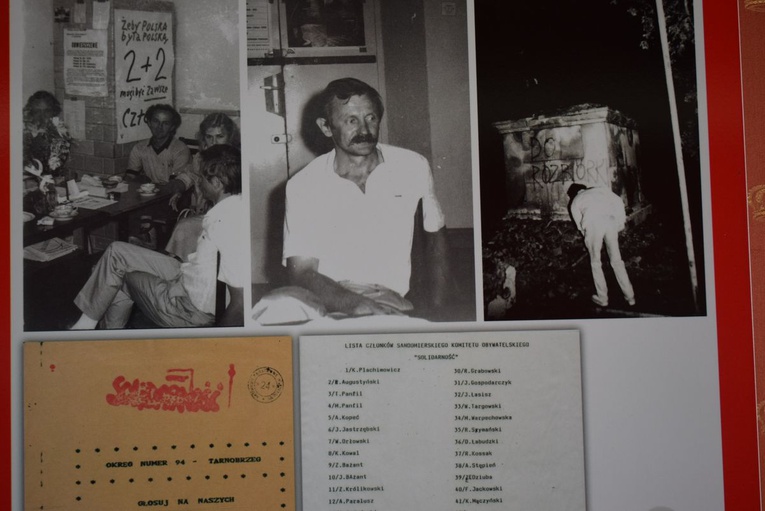 Żeby POLSKA
była POLSKĄ
2+2
musi być zawsze
OBWIESZCZENIE
DO
ROZBIÓRKI
SOLIDARNOŚĆ
OKRĘG NUMER 94 - TARNOBRZEG
GŁOSUJ NA NASZYCH
LISTA CZŁONKÓW SANDOMIERSKIEGO KOMITETU OBYWATELSKIEGO
"SOLIDARNOŚĆ"
1/K.Plachimowicz
2/B.Augustyński
3/T.Panfil
4/M.Panfil
5/A.Kupeć
6/J.Jastrzębski
7/W.Orłowski
8/K.Kowal
9/Z.Bażant
10/J.Bażant
11/Z.Królikowski
12/A.Paralusz
30/R.Grabowski
31/J.Gospodarczyk
32/J.Lasisz
33/W.Targowski
34/H.Warpechowska
35/R.Szymański
36/D.Łabudzki
37/R.Kossak
38/A.Stępień
39/Dziuba
40/F.Jackowski
41/K.Męczyński